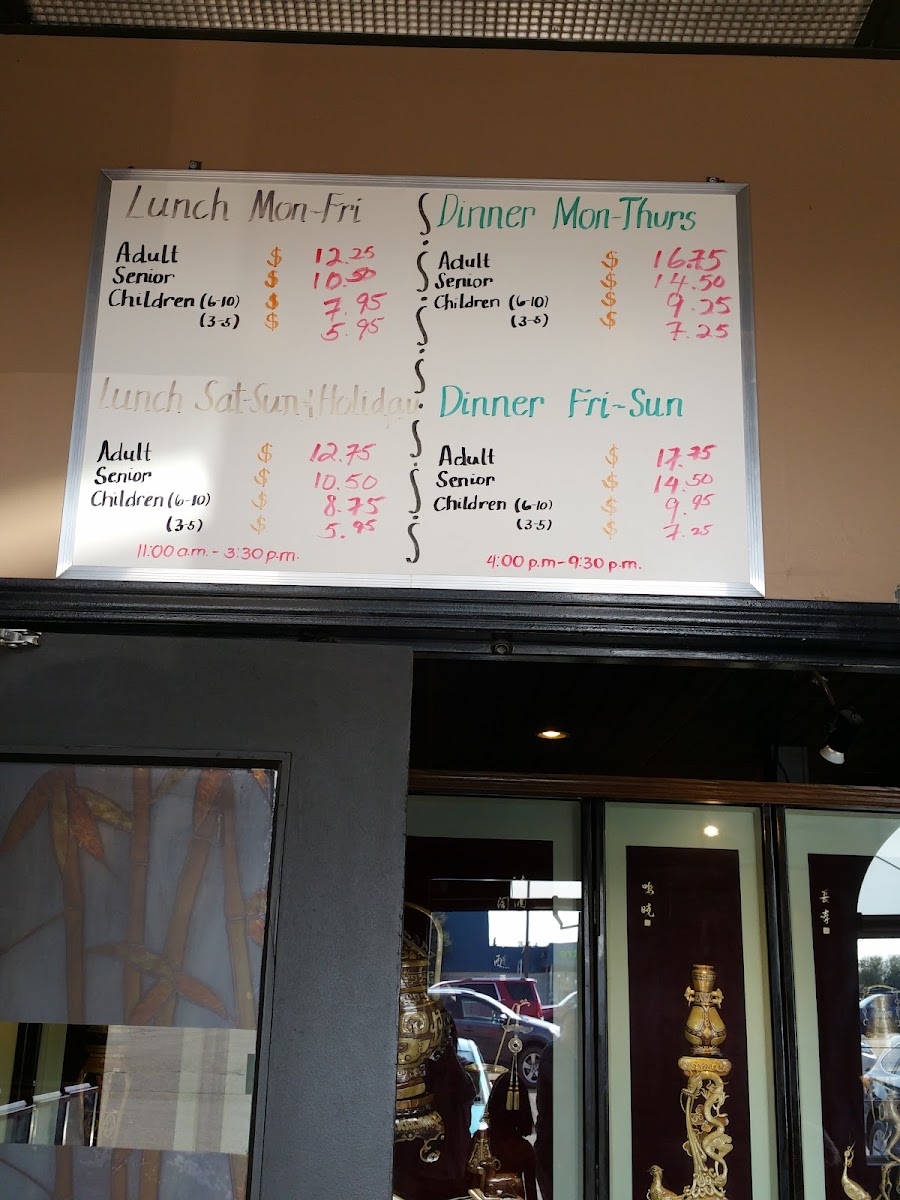 Lunch Mon-Fri
Adult $ 12.25
Senior $ 10.50
Children (6-10) $ 7.95
(3-5) $ 5.95
Dinner Mon-Thurs
Adult $ 16.75
Senior $ 14.50
Children (6-10) $ 9.25
(3-5) $ 7.25
Lunch Sat-Sun & Holiday
Adult $ 12.75
Senior $ 10.50
Children (6-10) $ 8.75
(3-5) $ 5.95
11:00 a.m. - 3:30 p.m.
Dinner Fri-Sun
Adult $ 17.75
Senior $ 14.50
Children (6-10) $ 9.95
(3-5) $ 7.25
4:00 p.m - 9:30 p.m.